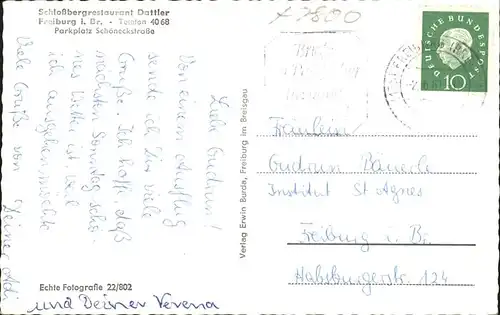 Schloßbergrestaurant Dattler
Freiburg i. Br. • Telefon 4068
Parkplatz Schöneckstraße
f 7800
DEUTSCHE BUNDESPOST
10
Liebe Gudrun!
Von einem Ausflug
sende ich Dir viele
Grüße. Ich hoffe, daß
nächsten Sonntag schö-
nes Wetter ist, weil
ich ausgehen möchte
Viele Grüße von Deiner
Verlag Erwin Burda, Freiburg im Breisgau
Fräulein
Gudrun Bäuerle
Institut St Agnes
Freiburg i. Br.
Habsburgerstr. 124
Echte Fotografie 22/802
und Deiner Verena